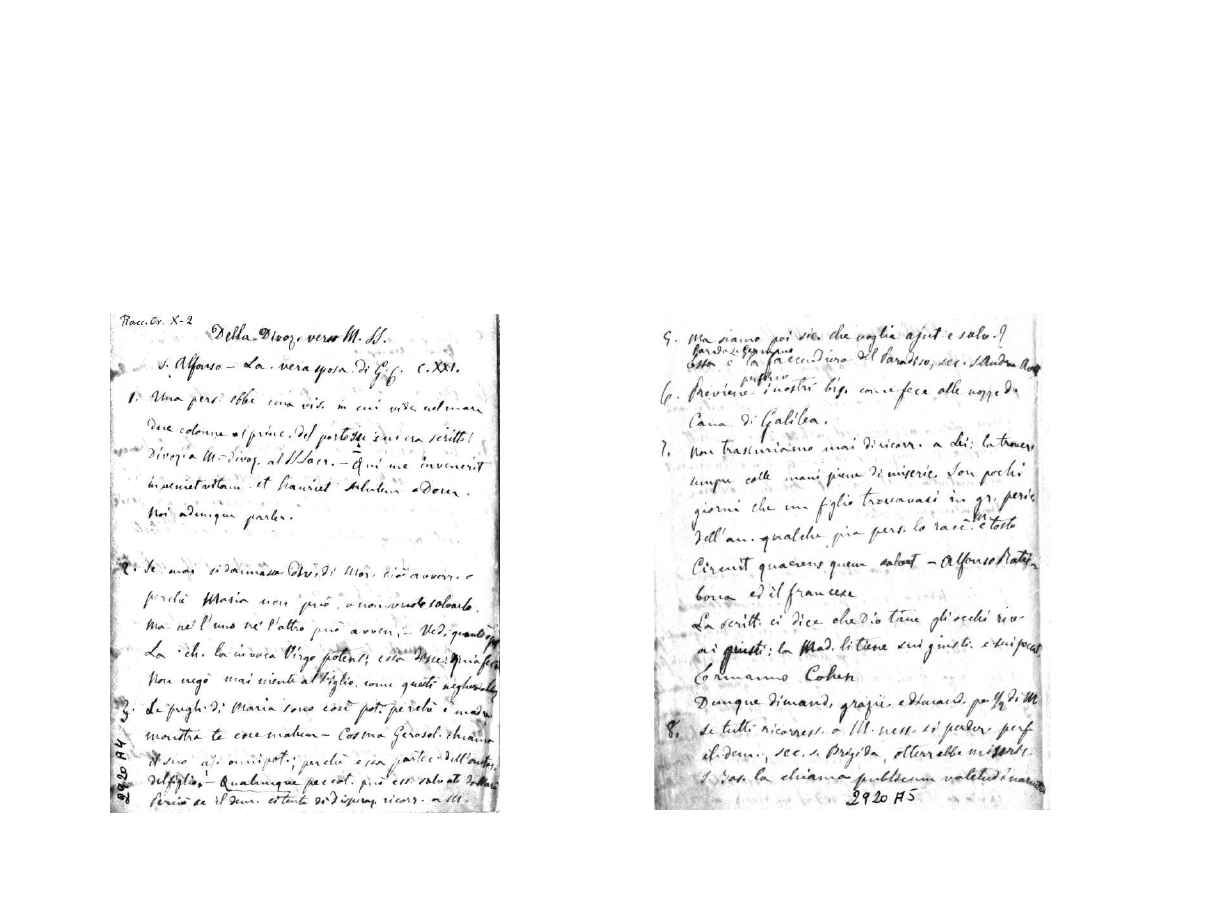 Racc. Or. X-2
Della Divoz. verso M. SS.
S. Alfonso - La vera sposa di G. C. C. XXI.
1. Una pers. ebbe una vis. in cui vide nel mare
due colonne ai princ. del porto su cui era scritto:
divoz. a M. - divoz. al SS. Sacr. - Qui me invenerit
inveniet vitam et hauriet salutem a Dom.
Noi adunque parler.
2. Se mai si dannasse div. di Mar. ciò avverr. o
perché Maria non può, o non vuole salvarlo.
Ma né l'uno né l'altro può avven. - Vedi quanto
La ch. la invoca Virgo potens; essa disse: Quia fecit
Non negò mai niente al figlio, come questi negherà
3. Le pregh. di Maria sono così pot. perché è madre
monstra te esse matrem - Cosma Gerosol. chiama
il suo aj. omnipot.; perché essa partec. dell'autor.
del figlio! - Qualunque peccat. può ess. salvato da Maria
Perciò se il dem. ci tenta di disperaz. ricorr. a M.
2920 A4
5. Ma siamo poi sic. che voglia ajut. e salv.?
Essa è la faccendiera del Paradiso, sec. S. Andrea Av.
perfino
6. Previene i nostri bis. come fece alle nozze di
Cana di Galilea.
7. Non trascuriamo mai di ricorr. a Lei; la trover.
sempre colle mani piene di miseric. Son pochi
giorni che un figlio trovavasi in gr. peric.
dell'an. qualche pia pers. lo racc. e tosto
Circuit quaerens quem salvet - Alfonso Ratis-
bona ed il francese
La scritt. ci dice che Dio tiene gli occhi riv.
ai giusti; la Mad. li tiene sui giusti e sui pecc.
Ermanno Cohen
Dunque dimand. grazie, e dimand. per 1/2 di M.
8. Se tutti ricorress. a M. ness. si perder. perf.
il dem., sec. S. Brigida, otterrebbe miseric.
la chiama publicum valetudinarium
2920 A5